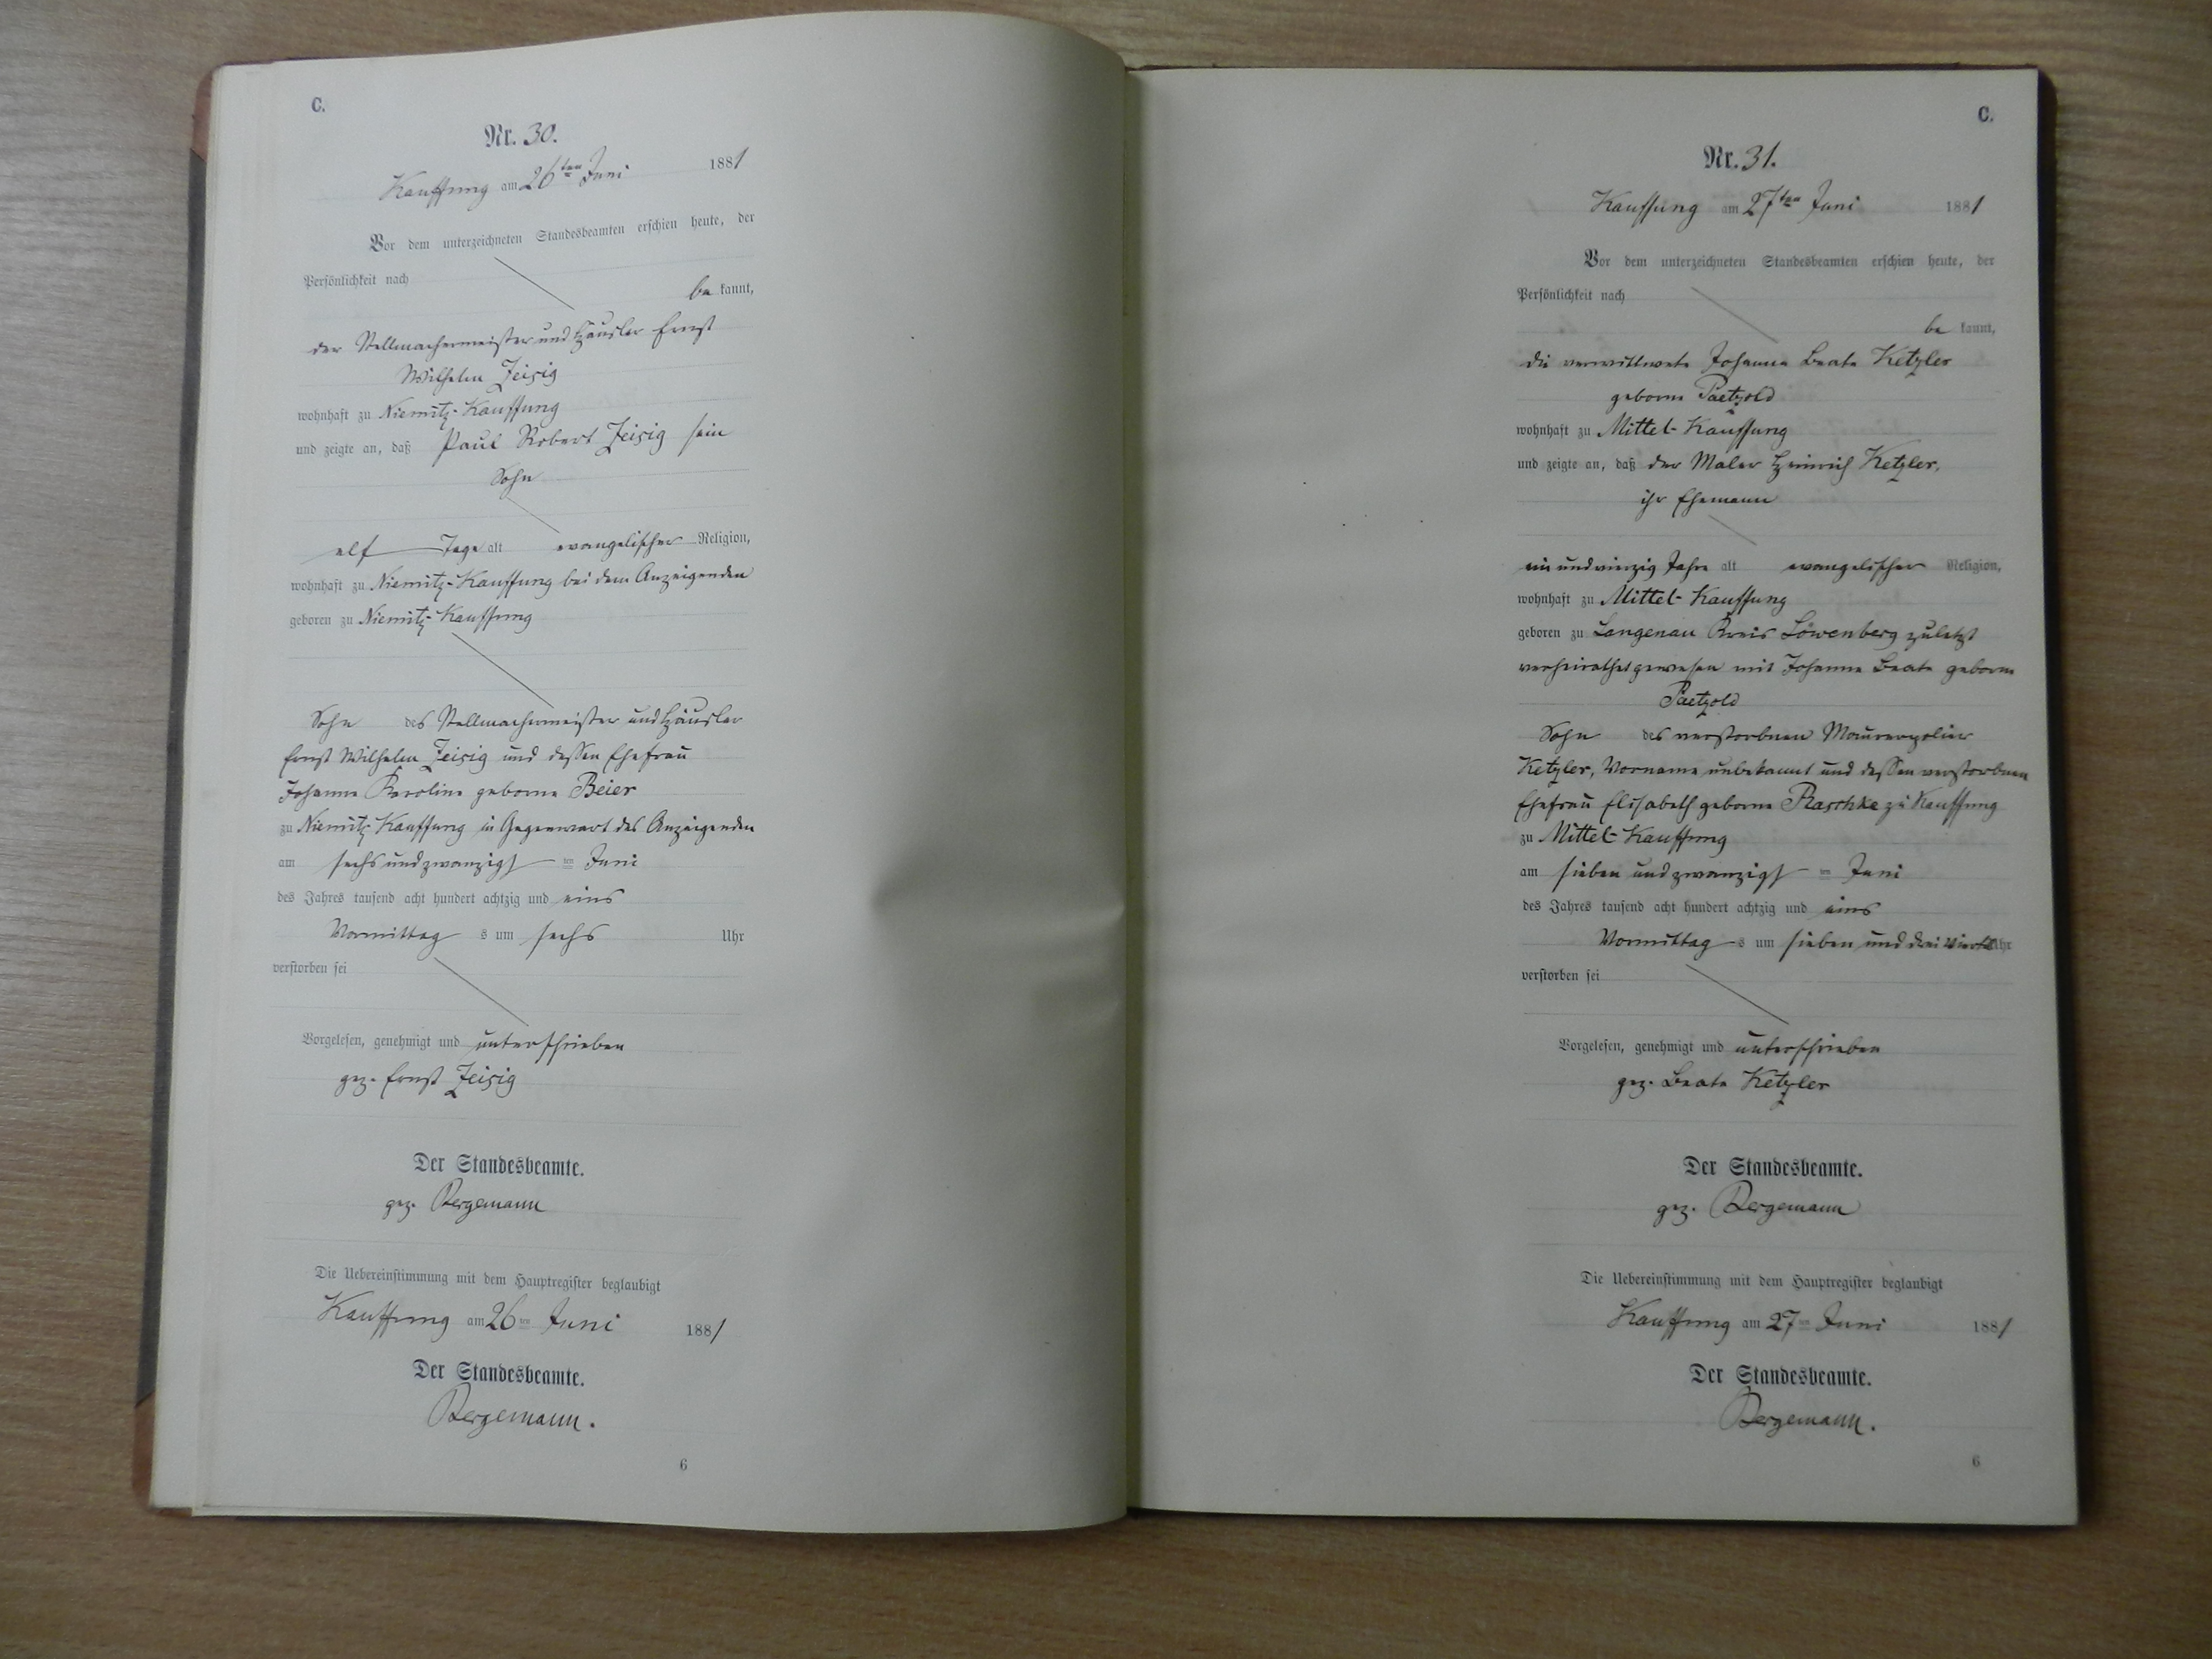 C.
Nr. 30.
Kauffung am 26ten Juni 1881
Vor dem unterzeichneten Standesbeamten erschien heute, der
Persönlichkeit nach
bekannt,
der Stellmachermeister und Häusler Ernst
Wilhelm Zeisig
wohnhaft zu Niemitz-Kauffung
und zeigte an, daß Paul Robert Zeisig sein
Sohn
elf Tage alt evangelischer Religion,
wohnhaft zu Niemitz-Kauffung bei dem Anzeigenden
geboren zu Niemitz-Kauffung
Sohn des Stellmachermeister und Häusler
Ernst Wilhelm Zeisig und dessen Ehefrau
Johanne Karoline geborne Beier
zu Niemitz-Kauffung in Gegenwart des Anzeigenden
am sechs und zwanzigsten Juni
des Jahres tausend acht hundert achtzig und eins
Vormittags um sechs Uhr
verstorben sei
Vorgelesen, genehmigt und unterschrieben
gez. Ernst Zeisig
Der Standesbeamte.
gez. Bergemann
Die Uebereinstimmung mit dem Hauptregister beglaubigt
Kauffung am 26ten Juni 1881
Der Standesbeamte.
Bergemann.
6
C.
Nr. 31.
Kauffung am 27ten Juni 1881
Vor dem unterzeichneten Standesbeamten erschien heute, der
Persönlichkeit nach
bekannt,
die verwittwete Johanne Beate Ketzler
geborne Paetzold
wohnhaft zu Mittel-Kauffung
und zeigte an, daß der Maler Heinrich Ketzler,
ihr Ehemann
ein und vierzig Jahre alt evangelischer Religion,
wohnhaft zu Mittel-Kauffung
geboren zu Langenau Kreis Löwenberg zuletzt
verheirathet gewesen mit Johanne Beate geborne
Paetzold
Sohn des verstorbnen Maurerpolier
Ketzler, Vorname unbekannt und dessen verstorbnen
Ehefrau Elisabeth geborne Raschke zu Kauffung
zu Mittel-Kauffung
am sieben und zwanzigsten Juni
des Jahres tausend acht hundert achtzig und eins
Vormittags um sieben und drei Viertel Uhr
verstorben sei
Vorgelesen, genehmigt und unterschrieben
gez. Beate Ketzler
Der Standesbeamte.
gez. Bergemann
Die Uebereinstimmung mit dem Hauptregister beglaubigt
Kauffung am 27ten Juni 1881
Der Standesbeamte.
Bergemann.
6